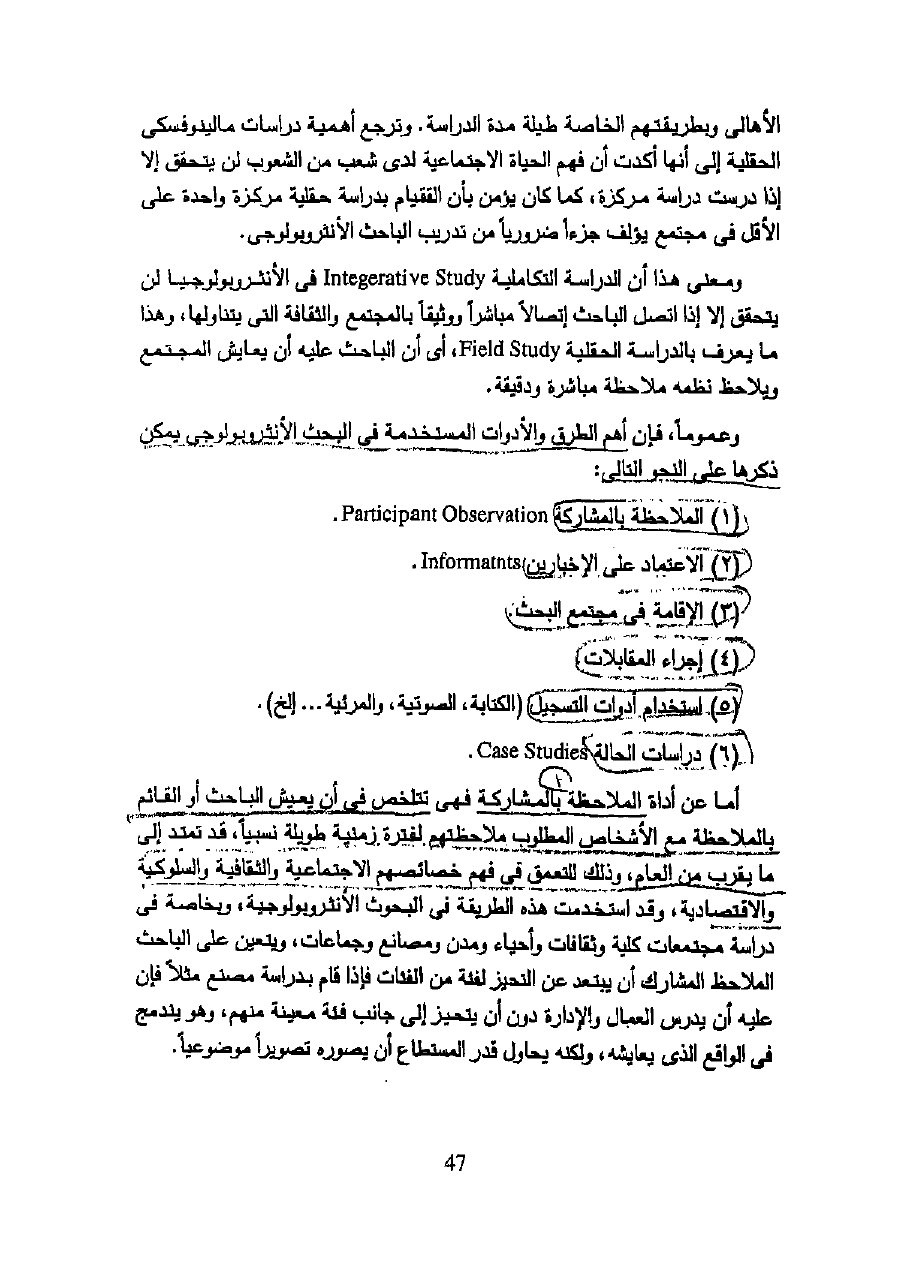 الأهالى وبطريقتهم الخاصة طيلة مدة الدراسة. وترجع أهمية دراسات مالينوفسكى
الحقلية إلى أنها أكدت أن فهم الحياة الاجتماعية لدى شعب من الشعوب لن يتحقق إلا
إذا درست دراسة مركزة، كما كان يؤمن بأن القيام بدراسة حقلية مركزة واحدة على
الأقل فى مجتمع يؤلف جزءاً ضرورياً من تدريب الباحث الأنثروبولوجى.
ومعلى هذا أن الدراسة التكاملية Integerative Study فى الأنثروبولوجيا لن
يتحقق إلا إذا اتصل الباحث إتصالاً مباشراً ووثيقاً بالمجتمع والثقافة التى يتناولها، وهذا
ما يعرف بالدراسة الحقلية Field Study، أى أن الباحث عليه أن يعايش المجتمع
ويلاحظ نظمه ملاحظة مباشرة ودقيقة.
وعموماً، فإن أهم الطرق والأدوات المستخدمة فى البحث الأنثروبولوجى يمكن
ذكرها على النحو التالى:
(١) الملاحظة بالمشاركة Participant Observation.
(٢) الاعتماد على الإخباريين Informatnts.
(٣) الإقامة فى مجتمع البحث.
(٤) إجراء المقابلات
(٥) استخدام أدوات التسجيل (الكتابة، الصوتية، والمرئية... إلخ).
(٦) دراسات الحالة Case Studies.
أما عن أداة الملاحظة بالمشاركة فهى تتلخص فى أن يعيش الباحث أو القائم
بالملاحظة مع الأشخاص المطلوب ملاحظتهم لفترة زمنية طويلة نسبياً، قد تمتد إلى
ما يقرب من العام، وذلك للتعمق فى فهم خصائصهم الاجتماعية والثقافية والسلوكية
والاقتصادية، وقد استخدمت هذه الطريقة فى البحوث الأنثروبولوجية، وبخاصة فى
دراسة مجتمعات كلية وثقافات وأحياء ومدن ومصانع وجماعات، ويتعين على الباحث
الملاحظ المشارك أن يبتعد عن التحيز لفئة من الفئات فإذا قام بدراسة مصنع مثلاً فإن
عليه أن يدرس العمال والإدارة دون أن يتحيز إلى جانب فئة معينة منهم، وهو يندمج
فى الواقع الذى يعايشه، ولكنه يحاول قدر المستطاع أن يصوره تصويراً موضوعياً.
47